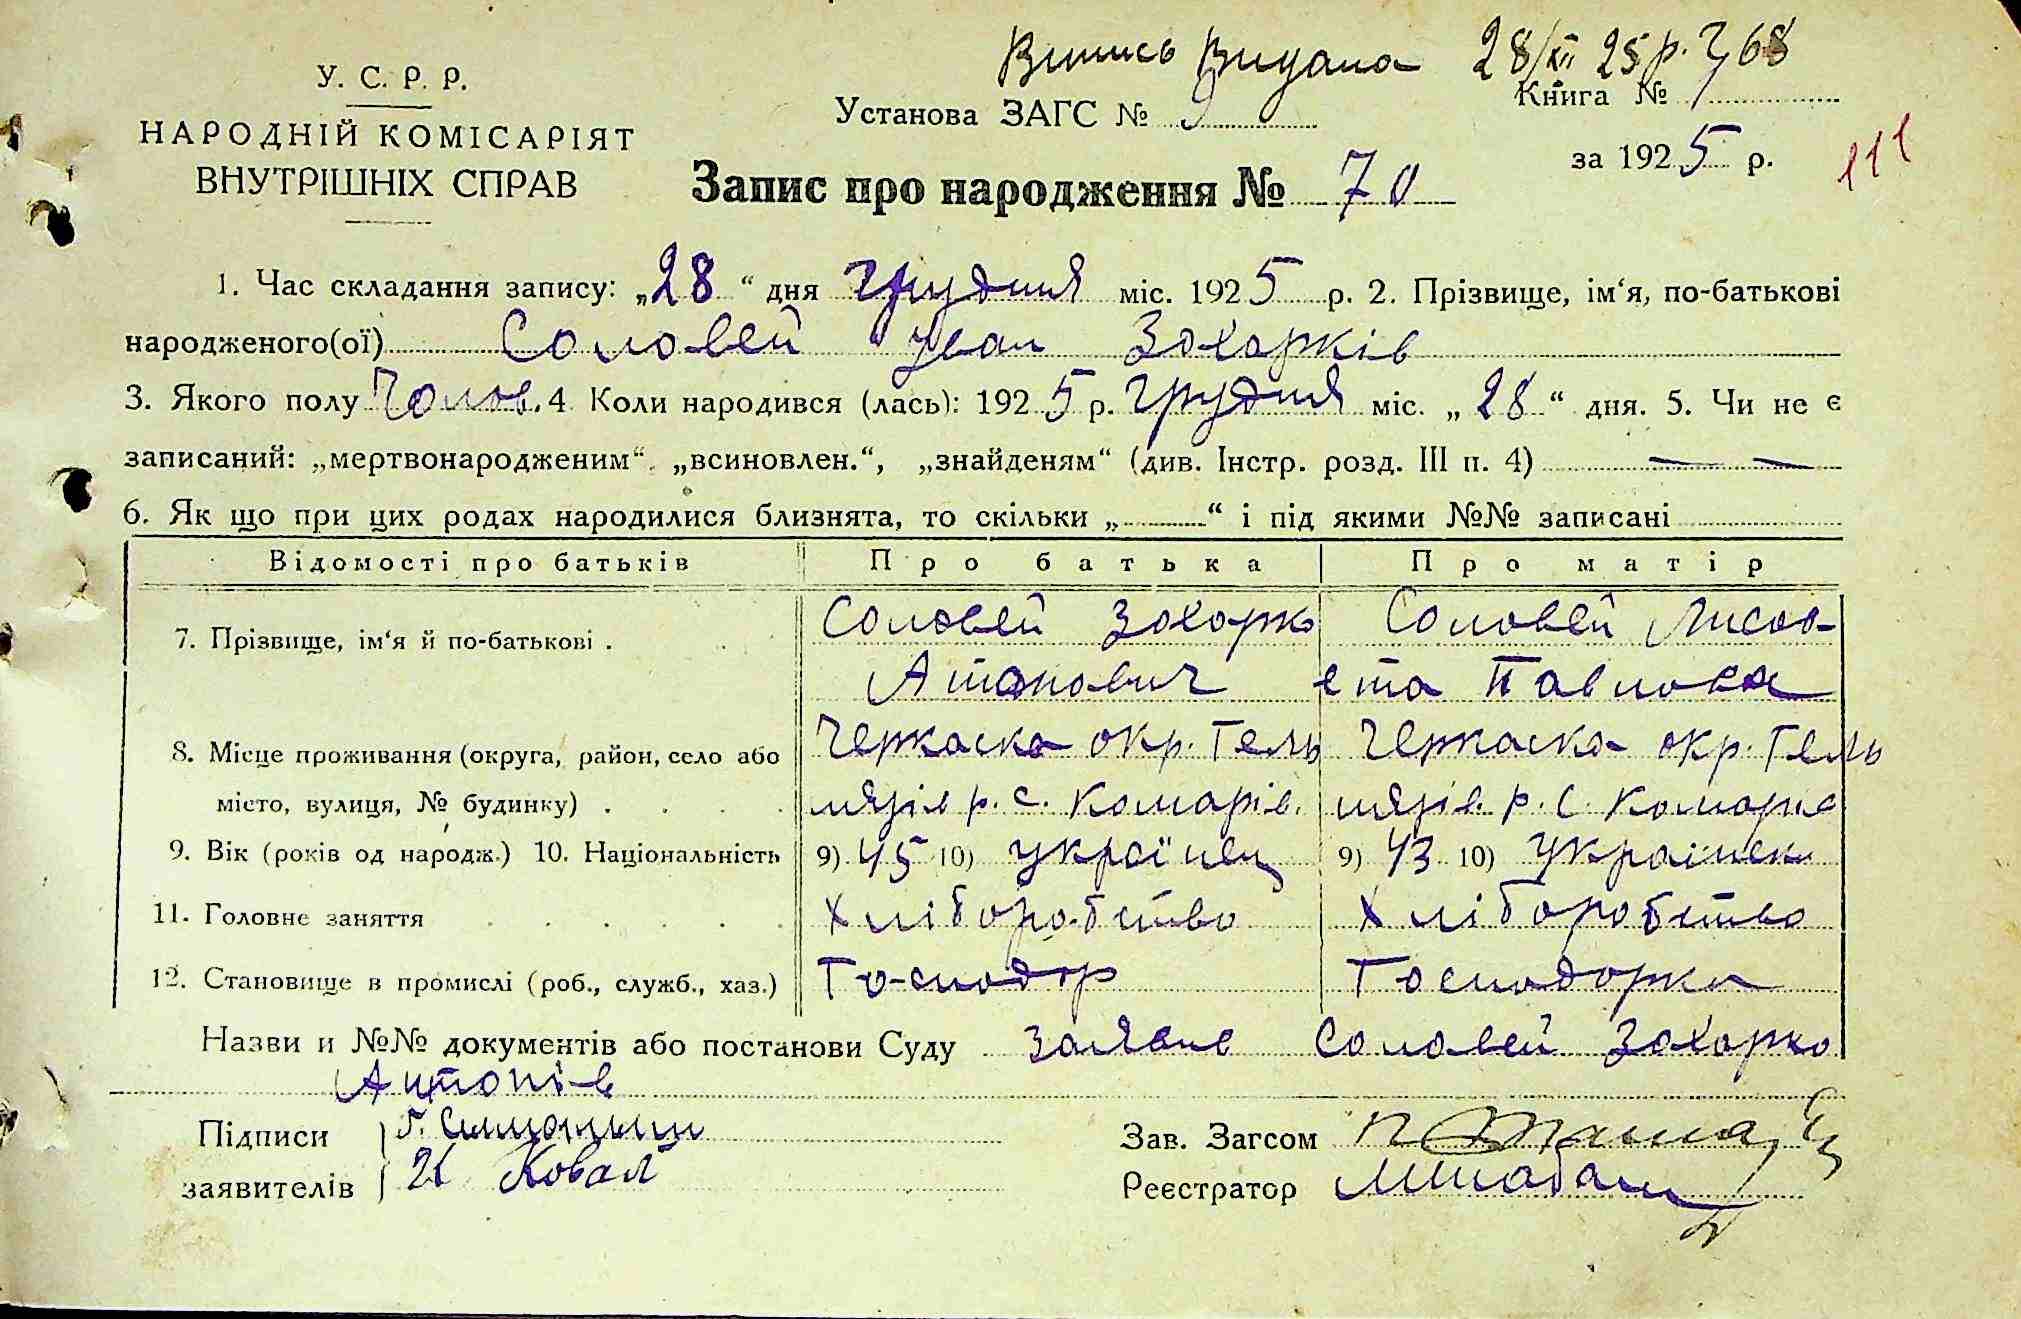 Випись Видана 28/XII 25 р. 768
У. С. Р. Р.
НАРОДНІЙ КОМІСАРІЯТ
ВНУТРІШНІХ СПРАВ
Установа ЗАГС № 9
Книга №
за 1925 р.
111
Запис про народження № 70
1. Час складання запису: „28“ дня грудня міс. 1925 р. 2. Прізвище, ім‘я, по-батькові
народженого(ої) Соловей Іван Захарків
3. Якого полу Чолов. 4 Коли народився (лась): 1925 р. грудня міс. „28“ дня. 5. Чи не є
записаний: „мертвонародженим“, „всиновлен.“, „знайденям“ (див. Інстр. розд. III п. 4) — —
6. Як що при цих родах народилися близнята, то скільки „ “ і під якими №№ записані
Відомості про батьків Про батька Про матір
7. Прізвище, ім‘я й по-батькові . Соловей Захарко Соловей Лисав-
Антонович ета Павловна
8. Місце проживання (округа, район, село або Черкаска окр. Гель Черкаска окр. Гель
місто, вулиця, № будинку) . . . . мязів р. с. Комарів. мязів. р. с. Комарів
9. Вік (років од народж.) 10. Національність 9) 45 10) українец 9) 43 10) українска
11. Головне заняття . . . . . Хліборобство Хліборобство
12. Становище в промислі (роб., служб., хаз.) Господар Господарка
Назви и №№ документів або постанови Суду Заявив Соловей Захарко
Антонів
Підписи
заявителів
К Ковал
Зав. Загсом
Реєстратор